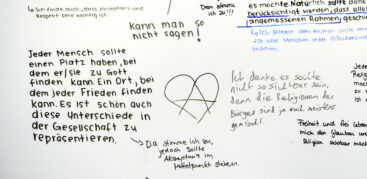 ↳ Ich finde auch, dass Akzeptanz und
Respekt sehr wichtig ist.
kann man so
nicht sagen!
Dem stimme
ich zu!!!
es möchte. Natürlich sollte
berücksichtigt werden, dass alles
angemessenen Rahmen, gesch
↳ Ich stimme dem
für alle Menschen
machen.
Jeder Mensch sollte
einen Platz haben, bei
dem er/sie zu Gott
finden kann. Ein Ort, bei
dem jeder Frieden finden
kann. Es ist schön auch
diese Unterschiede in
der Gesellschaft zu
repräsentieren.
↳ Da stimme ich zu,
jedoch sollte
Akzeptanz im
Mittelpunkt stehen.
Ich denke es sollte
nicht so sichtbar sein,
denn die Religionen des
Bürgers sind ja auch
Jede
Freiheit und
mich der Glauben, un
Religion sichtbar mach